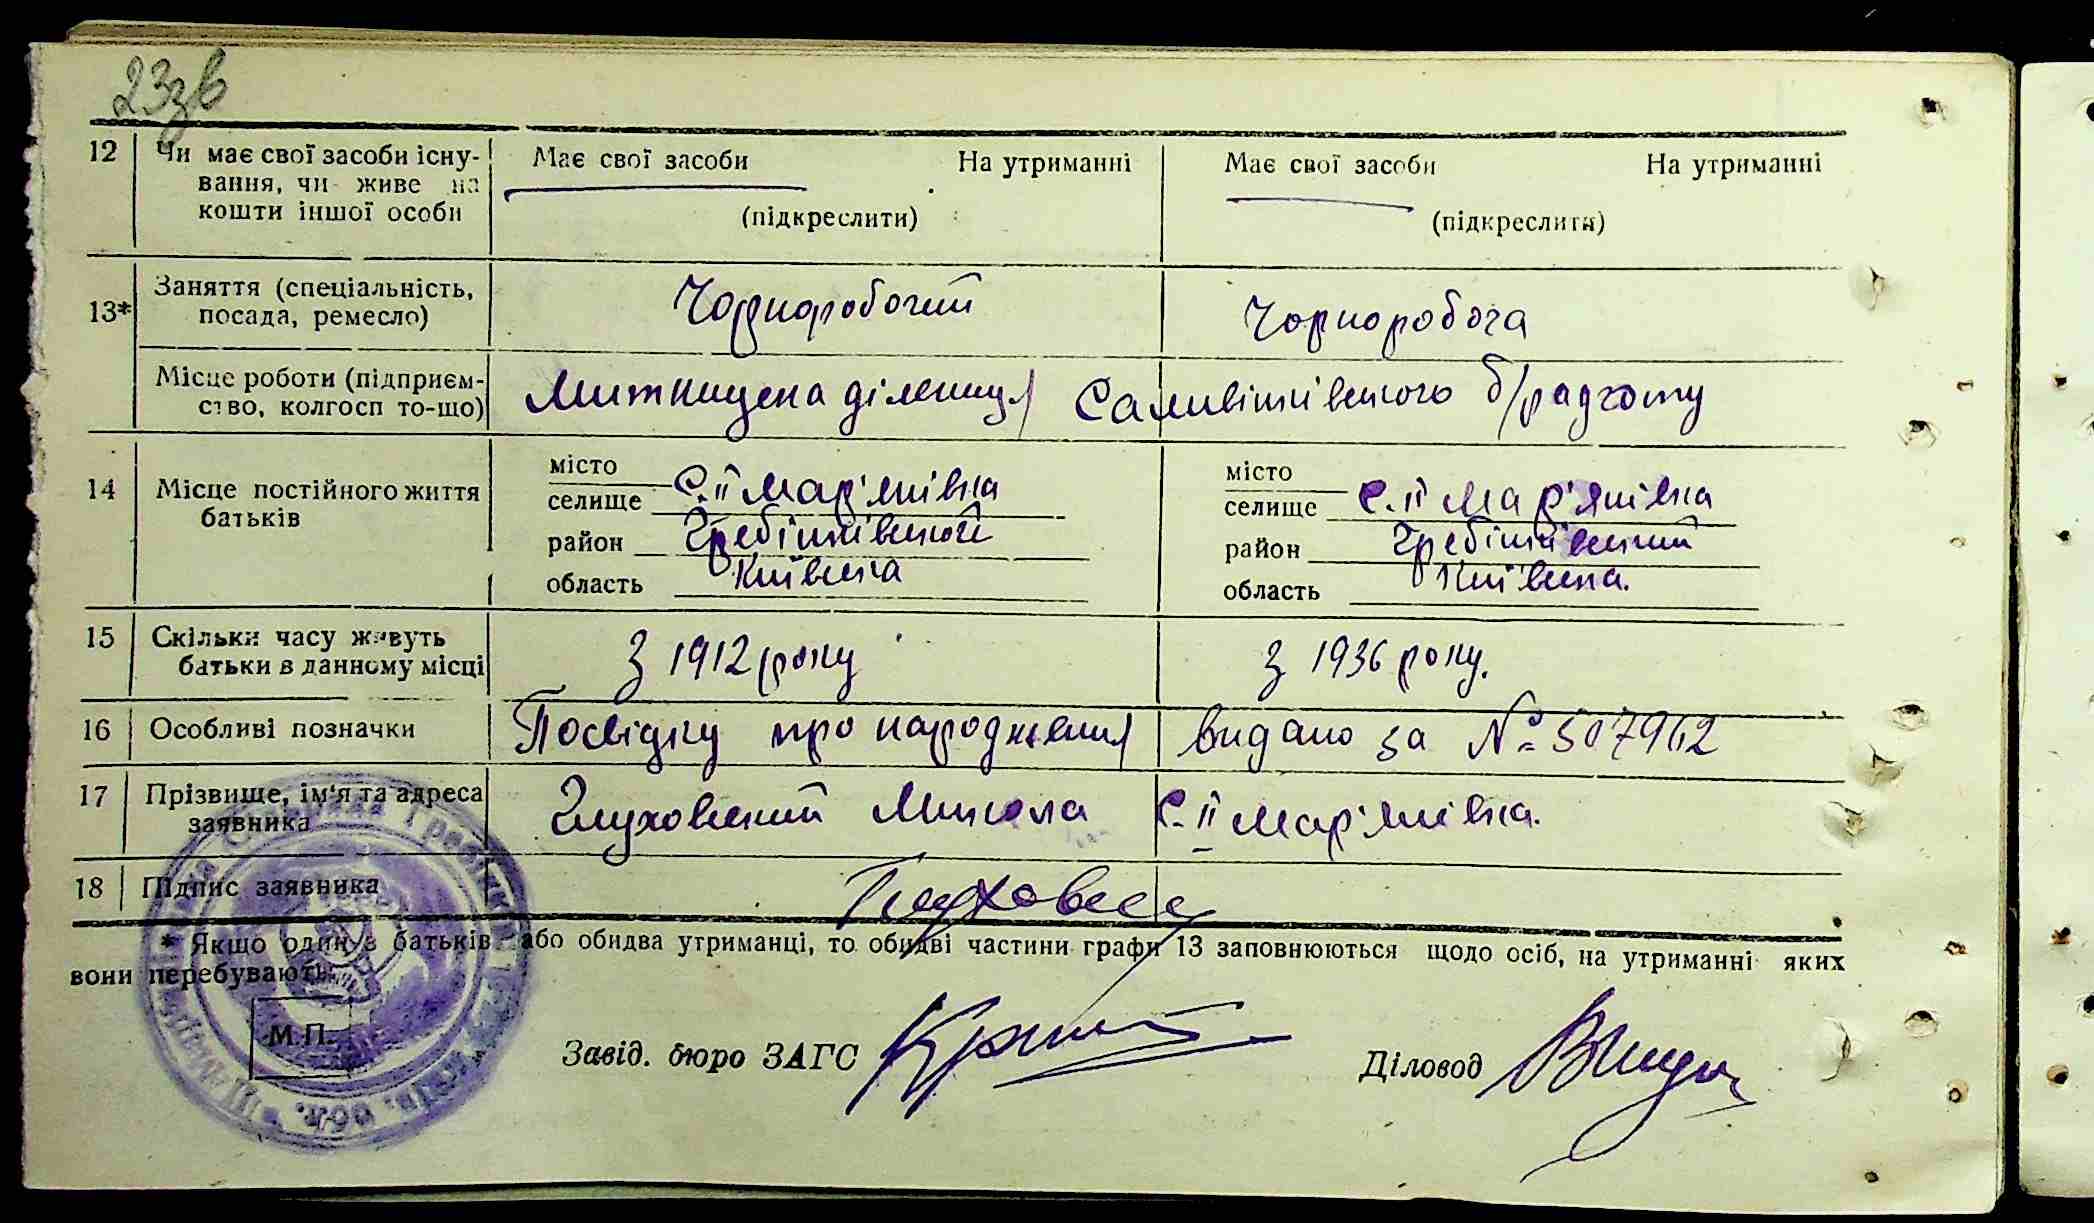 23зв
12 Чи має свої засоби існу- Має свої засоби На утриманні Має свої засоби На утриманні
вання, чи живе на
кошти іншої особи (підкреслити) (підкреслити)
13* Заняття (спеціальність, Чорноробочий Чорноробоча
посада, ремесло)
Місце роботи (підприєм- Митницька дільниця Саливінківського б/радгоспу
ство, колгосп то-що)
14 Місце постійного життя місто місто
батьків селище С. ІІ Мар'янівка селище С. ІІ Мар'янівка
район Гребінківський район Гребінківський
область Київська область Київська.
15 Скільки часу живуть З 1912 року З 1936 року.
батьки в данному місці
16 Особливі позначки Посвідку про народження видано за №
17 Прізвище, ім'я та адреса Глуховський Микола С. ІІ Мар'янівка.
заявника
18 Підпис заявника
* Якщо один з батьків або обидва утриманці, то обидві частини графи 13 заповнюються щодо осіб, на утриманні яких
вони перебувають.
М.П.
Завід. бюро ЗАГС Діловод